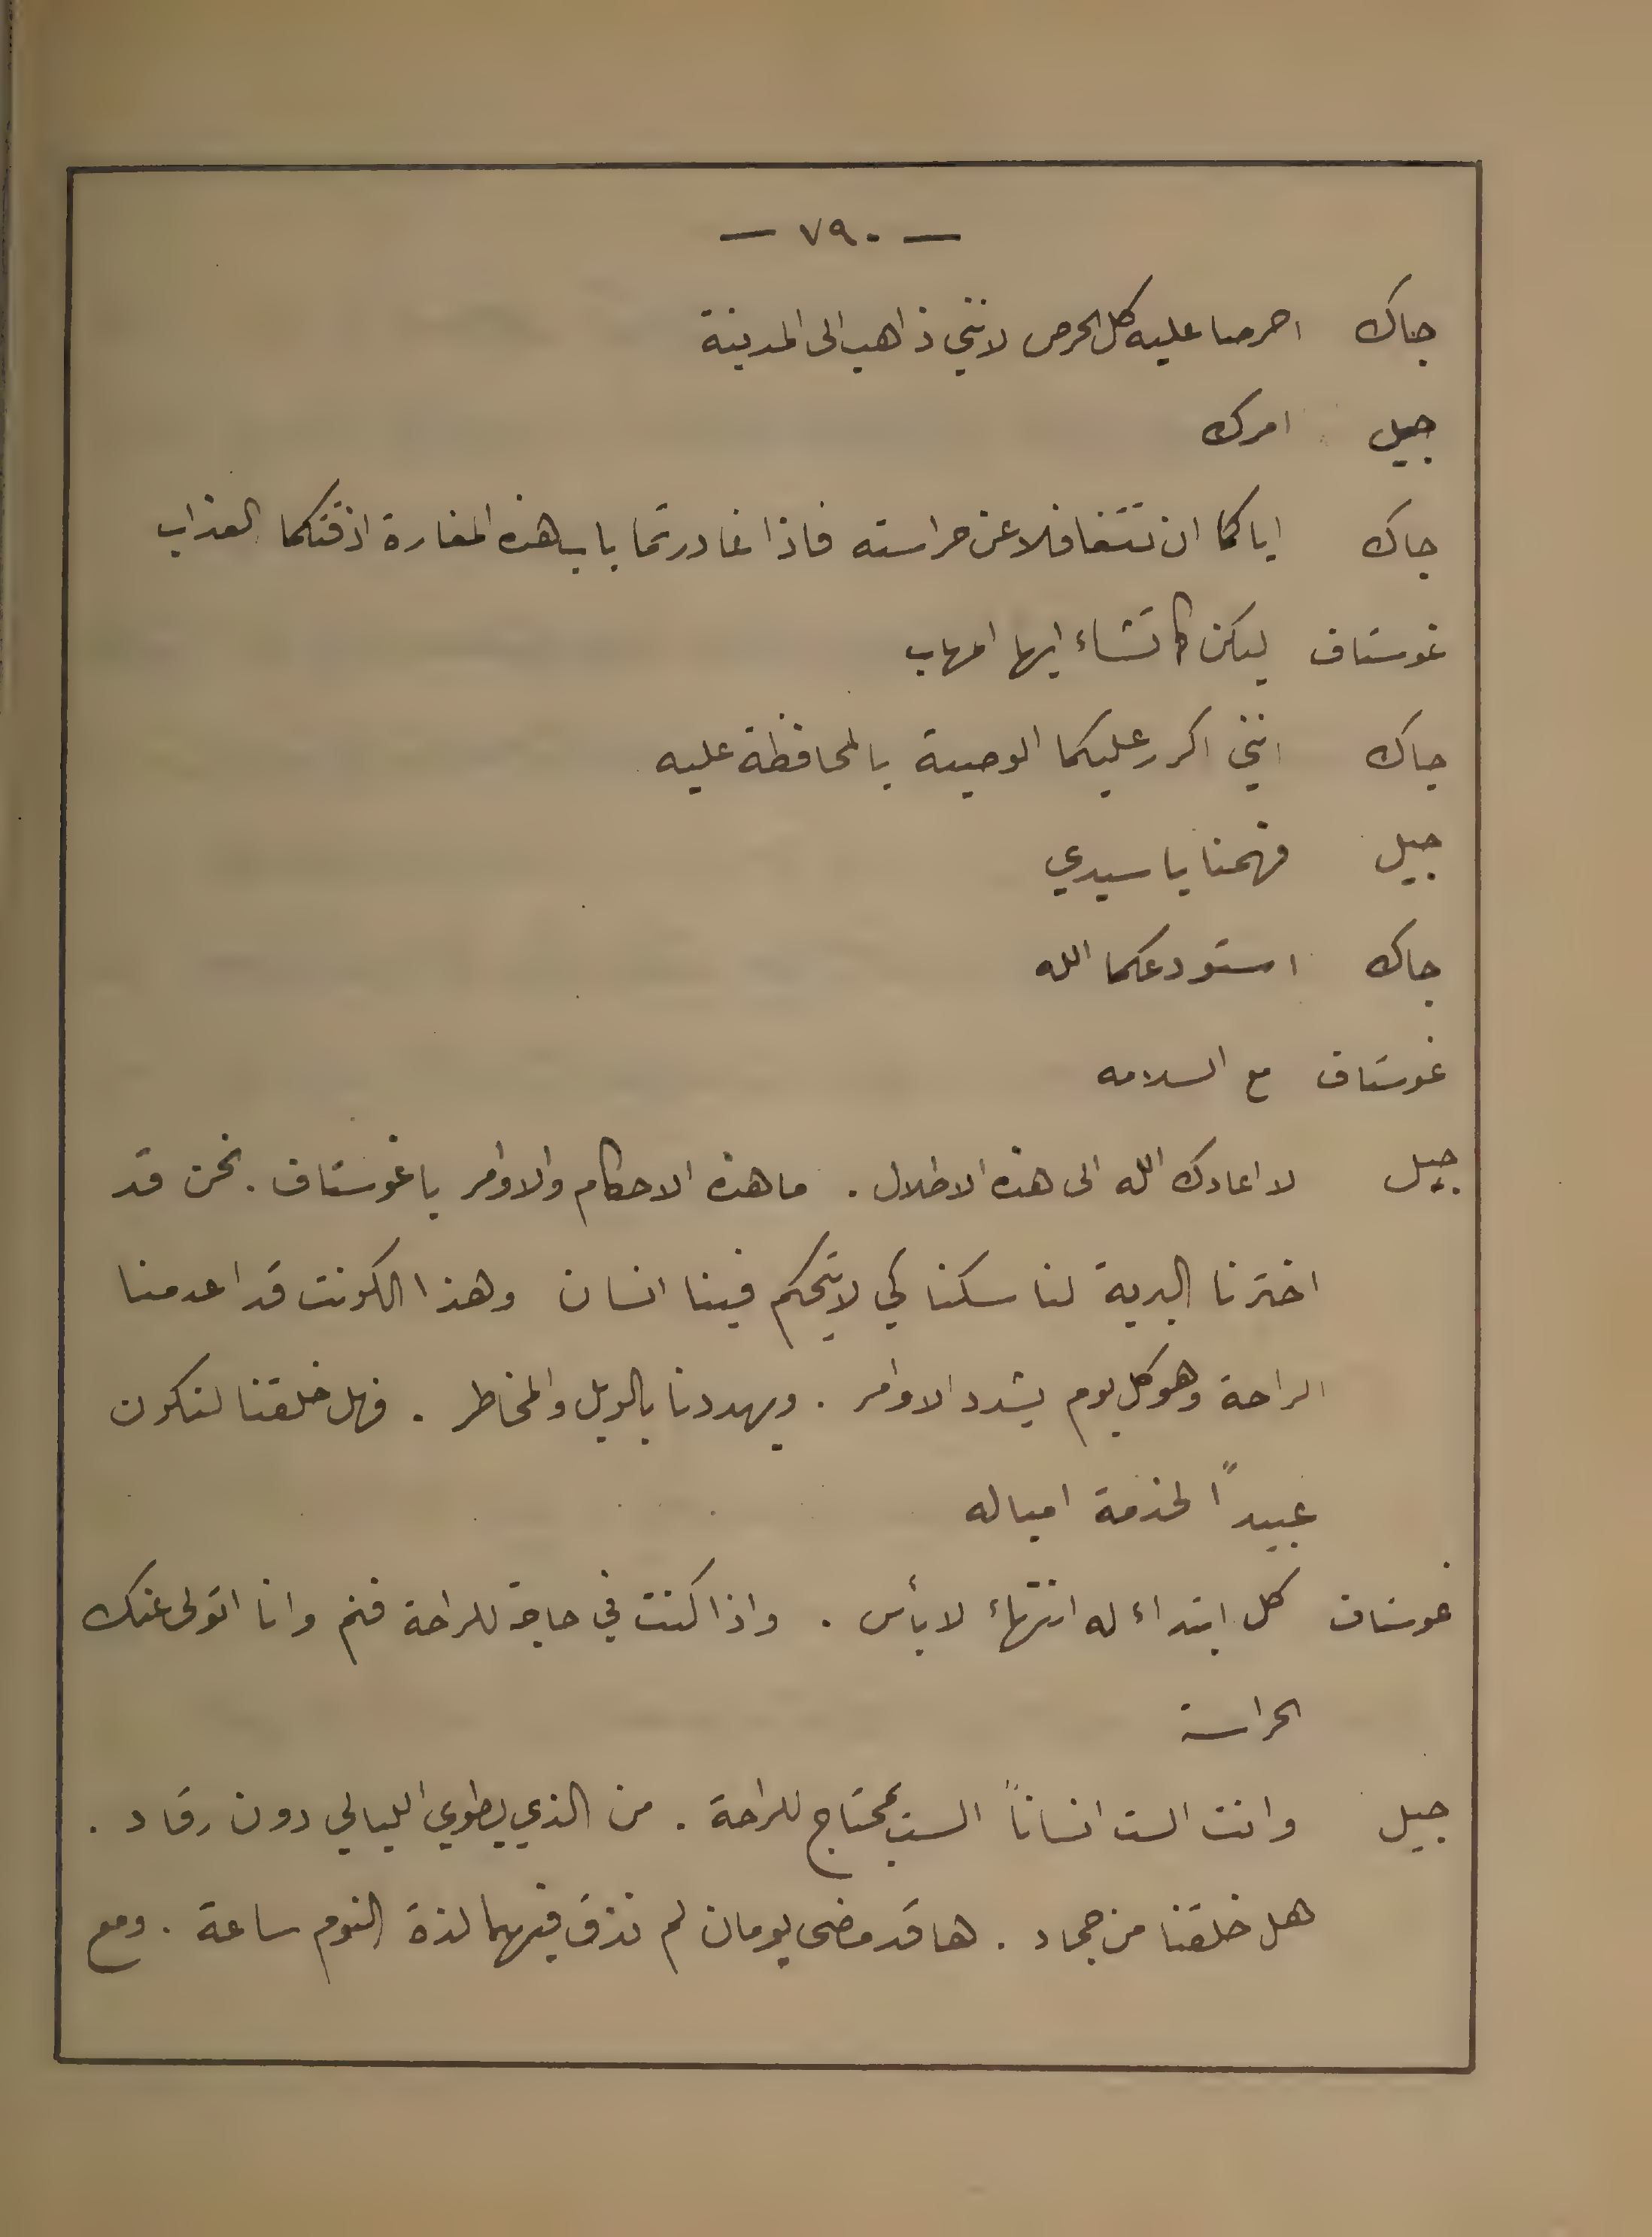 — ٧٩٠ —
جاك احرصا عليه كل الحرص لانني ذاهب الى المدينة
جيل امرك
جاك اياكما ان تتغافلا عن حراسته فاذا غادرتما باب هذه المغارة اذقتكما العذاب
غوستاف ليكن كما تشاء ايها المهاب
جاك انني اكرر عليكما الوصية بالمحافظة عليه
جيل فهمنا يا سيدي
جاك استودعكما الله
غوستاف مع السلامه
جيل لا اعادك الله الى هذه الاطلال . ما هذه الاحكام والاوامر يا غوستاف . نحن قد
اخترنا البرية لنا سكنا كي لا يتحكم فينا انسان وهذا الكونت قد اعدمنا
الراحة وهو كل يوم يشدد الاوامر . ويهددنا بالويل والمخاطر . فهل خلقنا لنكون
عبيداً لخدمة امياله
غوستاف كل ابتداء له انتهاء لا بأس . واذا كنت في حاجة للراحة فنم وانا اتولى عنك
الحراسة
جيل وانت الست انساناً الست بمحتاج للراحة . من الذي يطوي الليالي دون رقاد .
هل خلقنا من جماد . ها قد مضى يومان لم نذق فيهما لذة النوم ساعة . ومع